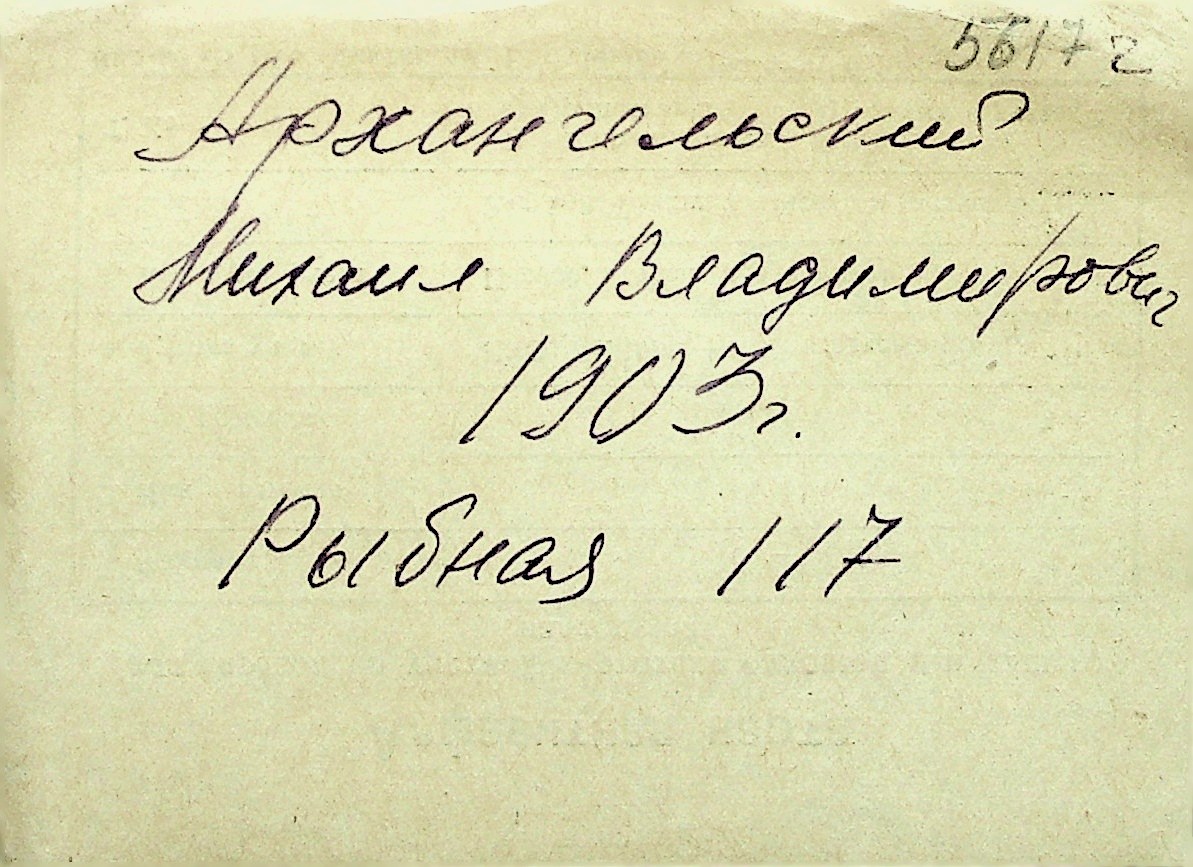 5617г
Архангельский
Михаил Владимирович
1903г.
Рыбная 117